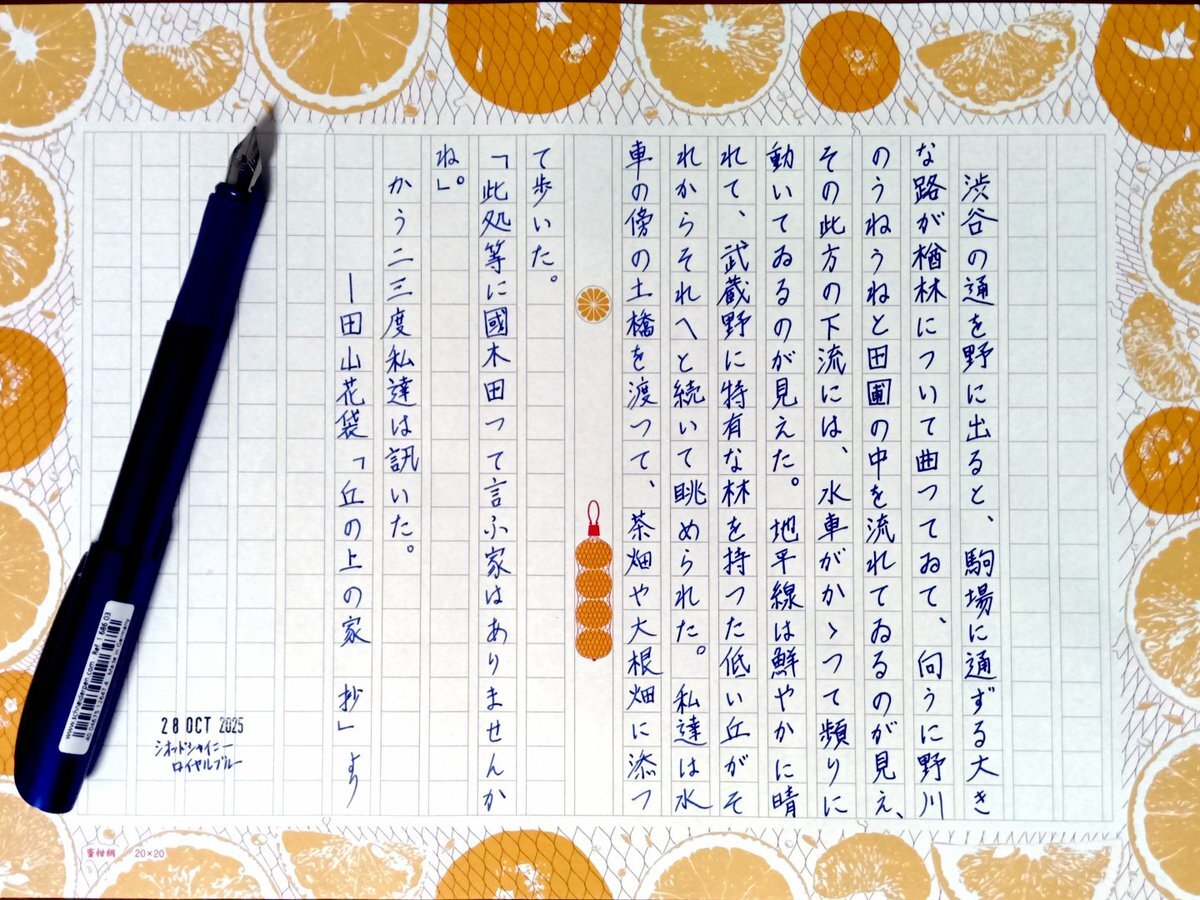 渋谷の通を野に出ると、駒場に通ずる大き
な路が楢林について曲つてゐて、向うに野川
のうねうねと田圃の中を流れてゐるのが見え、
その此方の下流には、水車がかゝつて頻りに
動いてゐるのが見えた。地平線は鮮やかに晴
れて、武蔵野に特有な林を持つた低い丘がそ
れからそれへと続いて眺められた。私達は水
車の傍の土橋を渡つて、茶畑や大根畑に添つ
て歩いた。
「此処等に國木田つて言ふ家はありませんか
ね」。
かう二三度私達は訊いた。
―田山花袋「丘の上の家 抄」より
28 OCT 2025
ジオッドシャイニー
ロイヤルブルー
www.schneiderpen.com Ref. 1 686 03
Made in Germany
蜜柑網 20×20